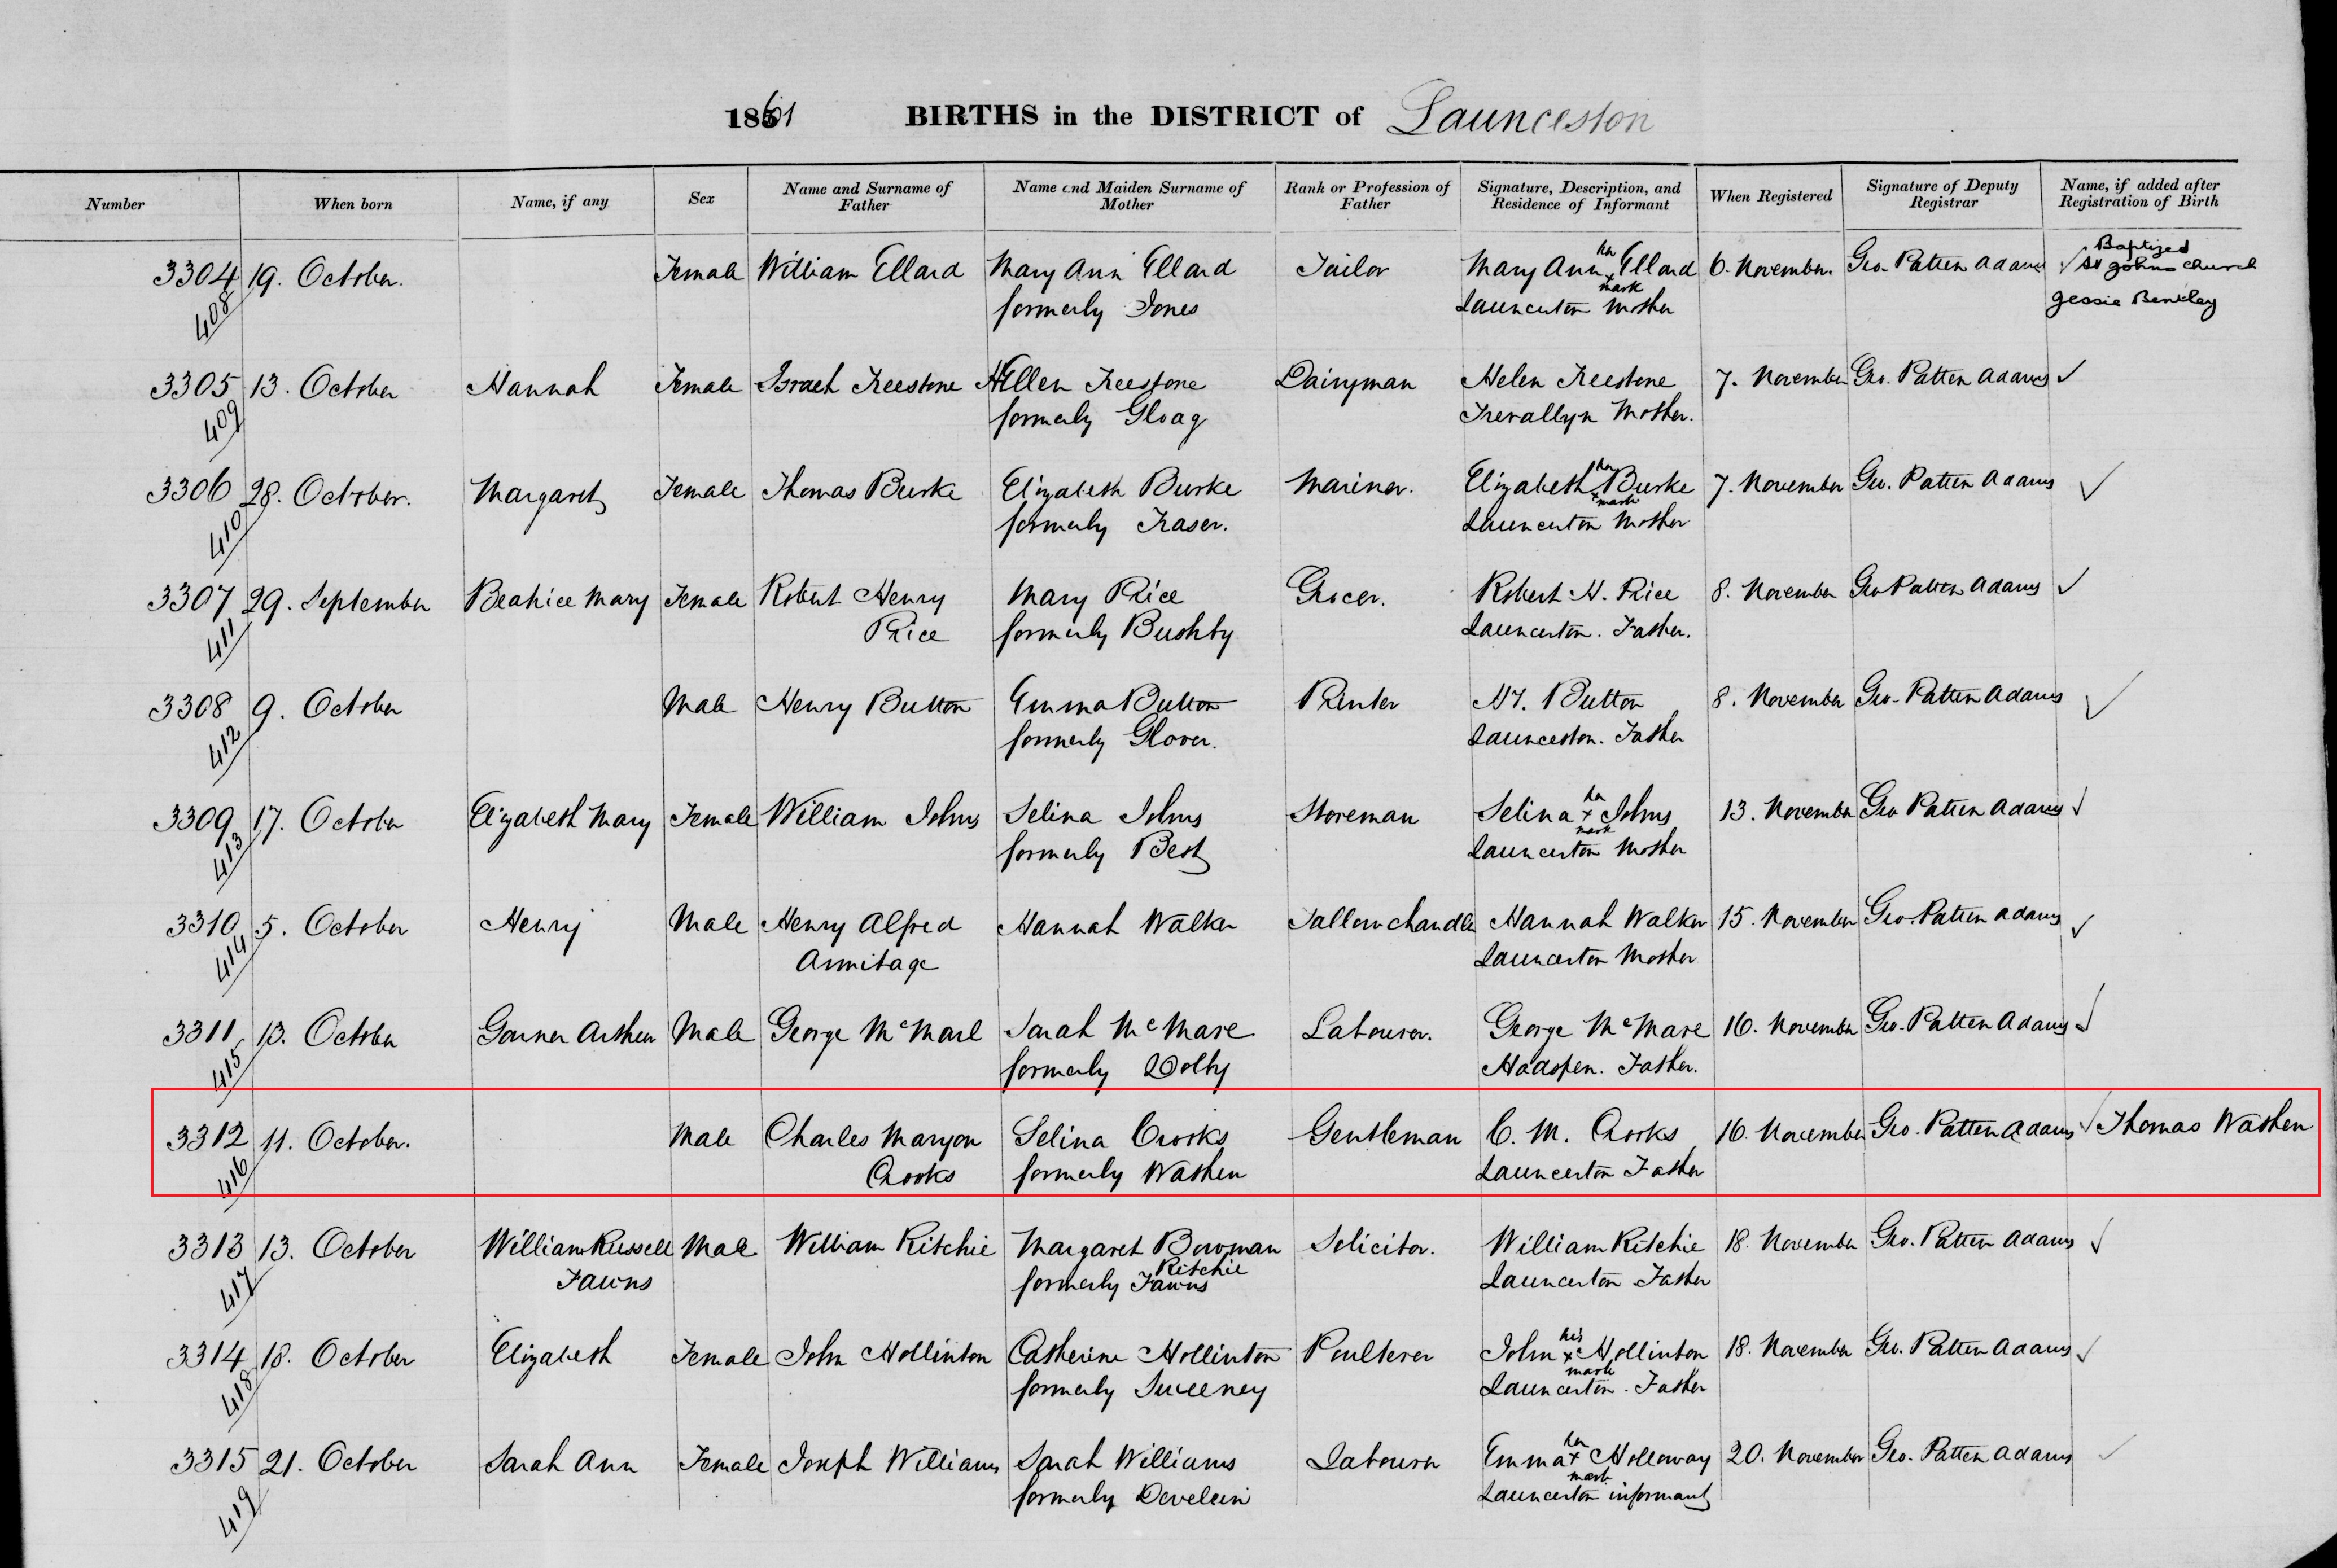 1861 BIRTHS in the DISTRICT of Launceston
Number When born Name, if any Sex Name and Surname of Father Name and Maiden Surname of Mother Rank or Profession of Father Signature, Description, and Residence of Informant When Registered Signature of Deputy Registrar Name, if added after Registration of Birth
3304 19. October. Female William Ellard Mary Ann Ellard Tailor Mary Ann her x mark Ellard 6. November. Geo. Patten Adams ✓ Baptized St Johns Church
408 formerly Jones Launceston Mother Jessie Benkley
3305 13. October Hannah Female Israel Freestone Hellen Freestone Dairyman Helen Freestone 7. November Geo. Patten Adams ✓
409 formerly Gloag Trevallyn Mother.
3306 28. October. Margaret Female Thomas Burke Elizabeth Burke Mariner. Elizabeth her x mark Burke 7. November Geo. Patten Adams ✓
410 formerly Fraser. Launceston Mother
3307 29. September Beatrice Mary Female Robert Henry Mary Rice Grocer. Robert H. Rice 8. November Geo Patten Adams ✓
411 Rice formerly Bushby Launceston. Father.
3308 9. October Male Henry Button Emma Button Printer Hy. Button 8. November Geo. Patten Adams ✓
412 formerly Glover. Launceston. Father
3309 17. October Elizabeth Mary Female William Johns Selina Johns Storeman Selina her x mark Johns 13. November Geo Patten Adams ✓
413 formerly Best Launceston Mother
3310 5. October Henry Male Henry Alfred Hannah Walker Tallow chandler Hannah Walker 15. November Geo. Patten Adams ✓
414 Armitage Launceston Mother
3311 13. October Arthur Male George McMare Sarah McMare Labourer. George McMare 16. November Geo. Patten Adams ✓
415 formerly Dolby Hadspen. Father.
3312 11. October. Male Charles Maryon Selina Crooks Gentleman C. M. Crooks 16. November Geo. Patten Adams ✓ Thomas Wathen
416 Crooks formerly Wathen Launceston Father
3313 13. October William Russell Male William Ritchie Margaret Bowman Solicitor. William Ritchie 18. November Geo. Patten Adams ✓
417 Fawns Ritchie formerly Fawns Launceston Father
3314 18. October Elizabeth Female John Hollinton Catherine Hollinton Poulterer John his x mark Hollinton 18. November Geo. Patten Adams ✓
418 formerly Sweeney Launceston. Father
3315 21. October Sarah Ann Female Joseph Williams Sarah Williams Labourer Emma her x mark Holloway 20. November Geo. Patten Adams ✓
419 formerly Develein Launceston informant